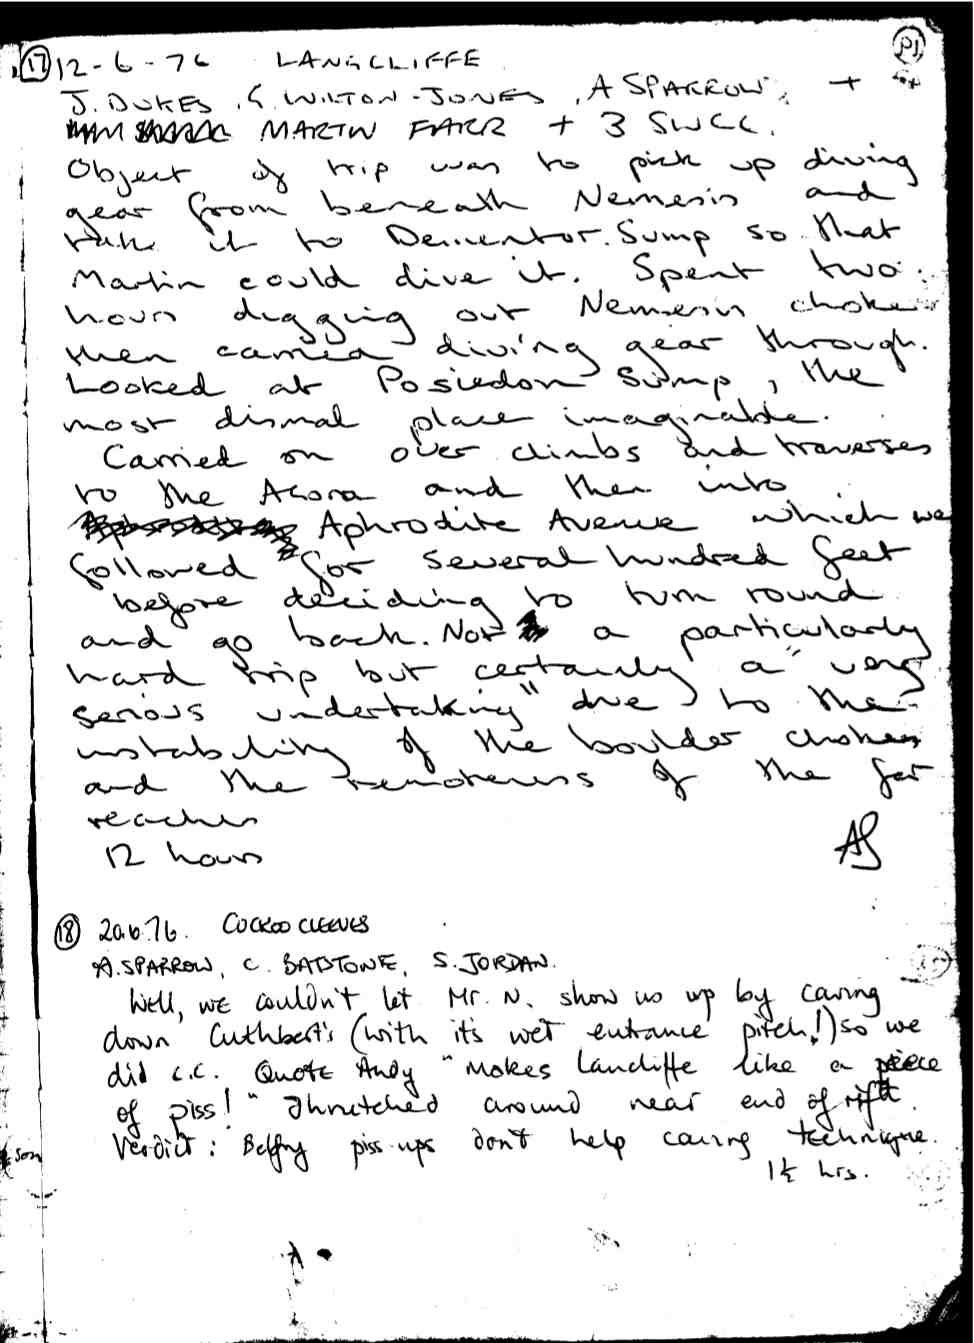 P1
17 12-6-76 LANGCLIFFE
J. DUKES, G. WILTON-JONES, A SPARROW, +
MARTIN FARR + 3 SWCC.
Object of trip was to pick up diving
gear from beneath Nemesis and
take it to Dementor Sump so that
Martin could dive it. Spent two
hours digging out Nemesis choke
then carried diving gear through.
Looked at Posiedon Sump, the
most dismal place imaginable.
Carried on over climbs and traverses
to the Agora and then into
Aphrodite Avenue which we
followed for several hundred feet
before deciding to turn round
and go back. Not a particularly
hard trip but certainly a "very
serious undertaking" due to the
instability of the boulder chokes
and the remoteness of the far
reaches
12 hours AS
18 20.6.76. CUCKOO CLEEVES
A. SPARROW, C. BATSTONE, S. JORDAN.
Well, we couldn't let Mr. N. show us up by caving
down Cuthbert's (with it's wet entrance pitch!) so we
did c.c. Quote Andy "Makes Lancliffe like a piece
of piss!" Thrutched around near end of rift.
Verdict: Belfry piss-ups don't help caving technique.
1½ hrs.